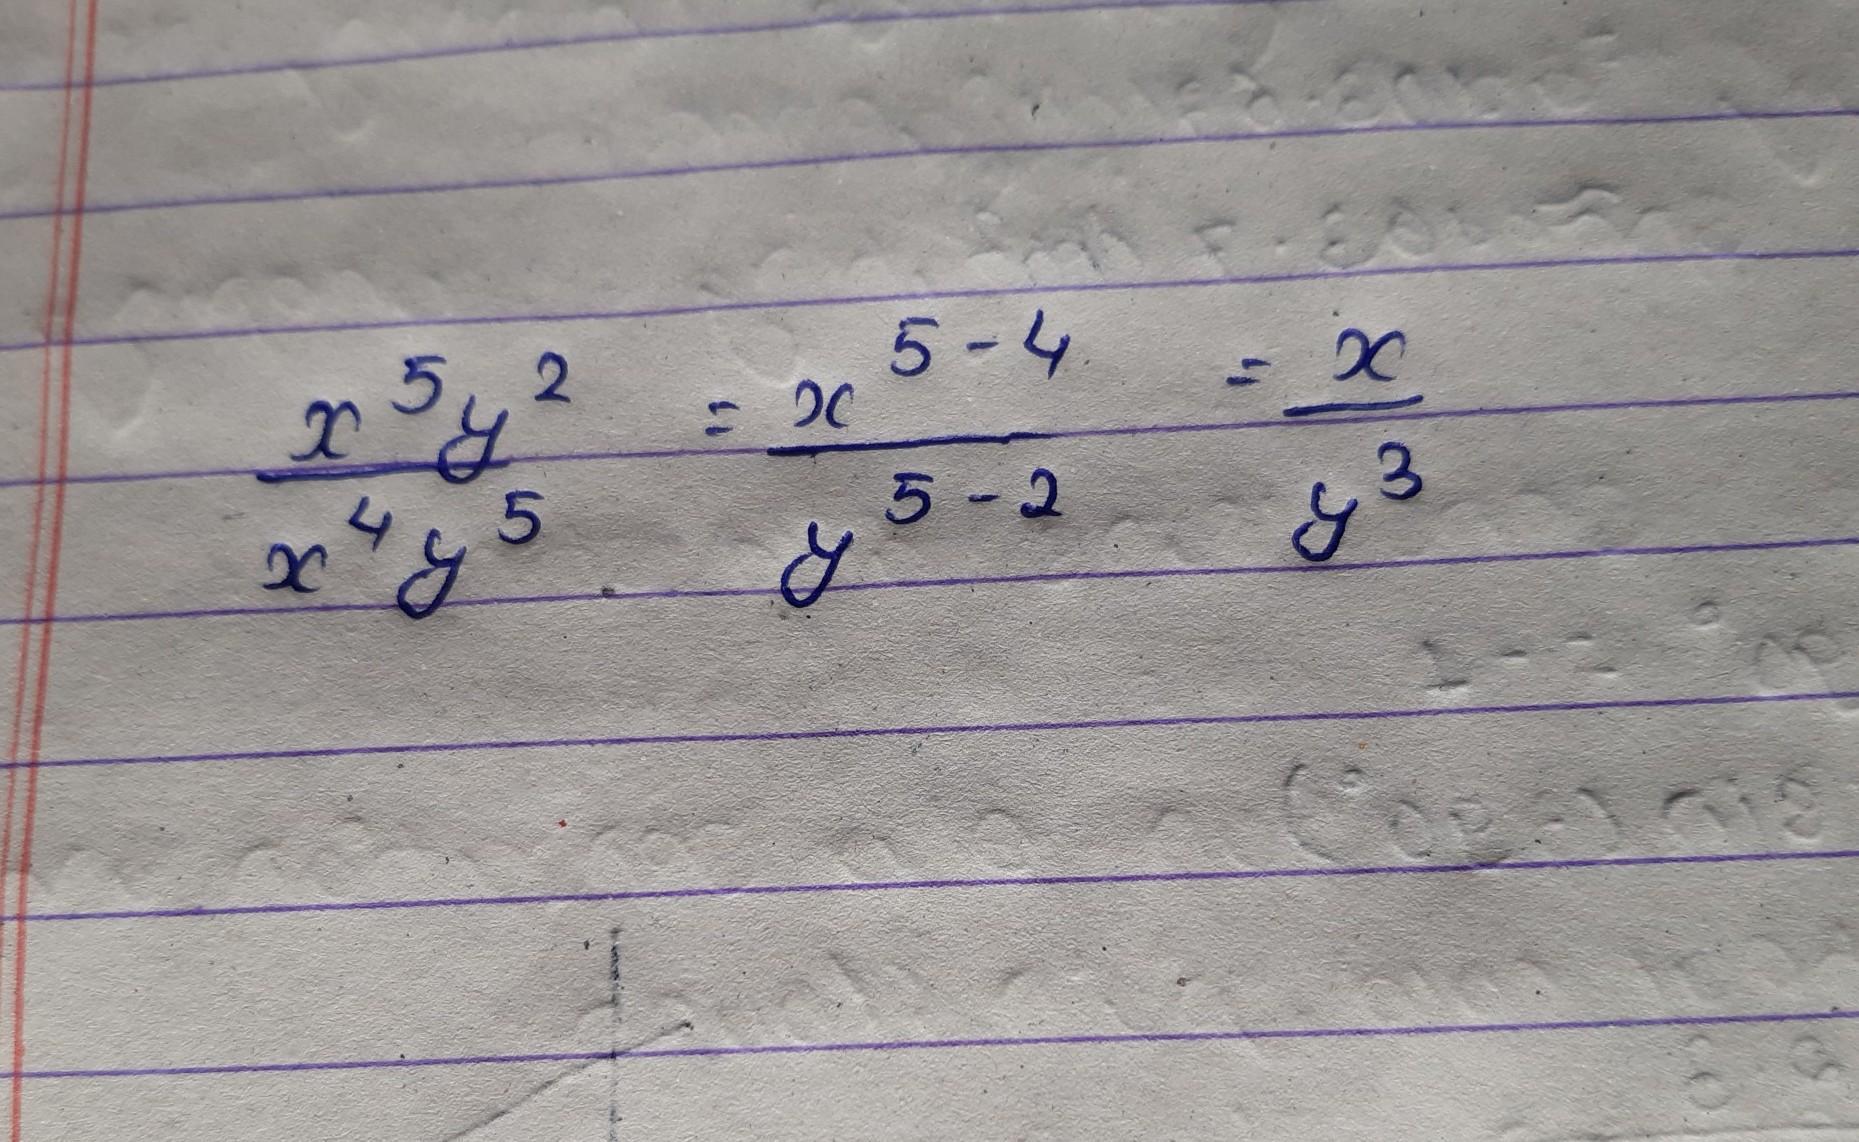 x^5y^2/x^4y^5 = x^5-4/y^5-2 = x/y^3